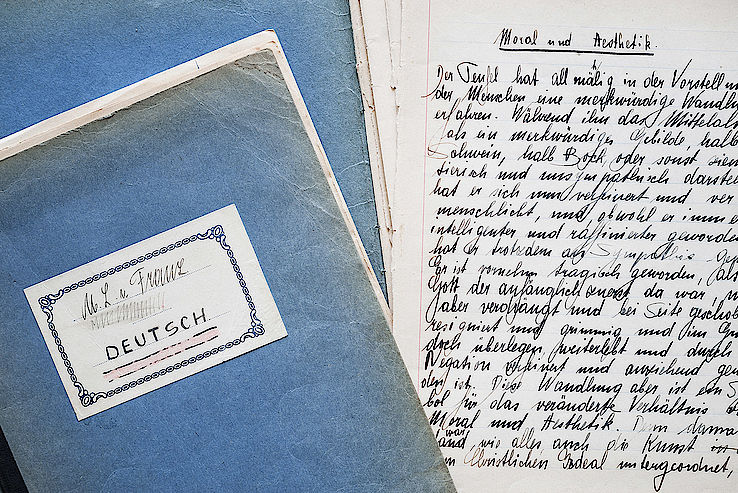 M. L. v. Franz
DEUTSCH
Moral und Aesthetik.
Der Teufel hat allmälig in der Vorstellun
der Menschen eine merkwürdige Wandlu
erfahren. Während ihn das Mittelal
als ein merkwürdiges Gebilde, halb
Schwein, halb Bock, oder sonst
tierisch und unsympathisch darstel
hat er sich nun verfeinert und ver
menschlicht, und, obwohl er immer
intelligenter und raffinierter geworde
hat er trotzdem an Sympathie
Er ist vornehm tragisch geworden, als
Gott der anfänglich zuerst da war,
aber verdrängt und bei Seite geschob
resigniert und grimmig und im
doch überlegen weiterlebt und durch
Negation verfeinert und anziehend
den ist. Diese Wandlung aber ist ein
bol für das veränderte Verhältnis
Moral und Aesthetik. Denn dama
war, wie alles auch die Kunst
Christlichen Ideal untergeordnet,